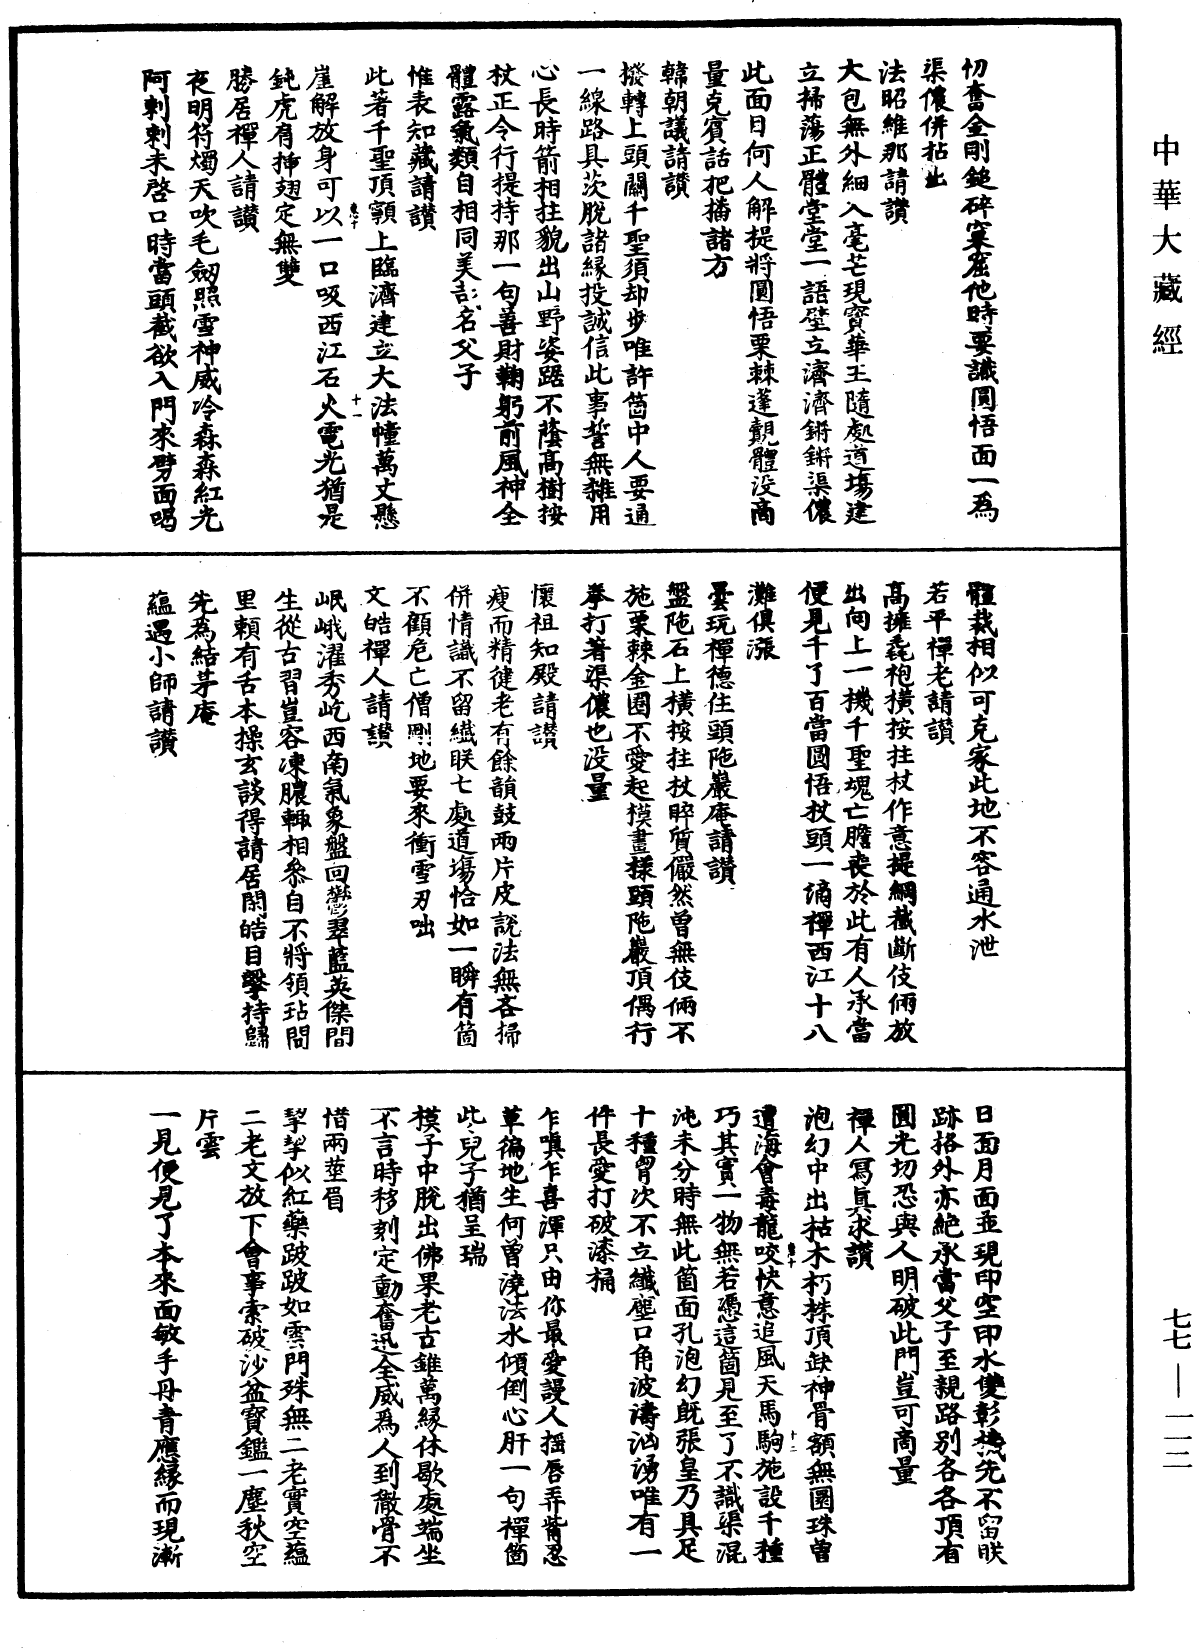 中華大藏經
切奮金剛鎚碎窠窟他時要識圓悟面一爲
渠儂併拈出
法昭維那請讚
大包無外細入毫芒現寶華王隨處道場建
立掃蕩正體堂堂一語壁立濟濟鏘鏘渠儂
此面目何人解提將圓悟栗棘蓬覿體没商
量克賓話把播諸方
韓朝議請讚
撥轉上頭關千聖須却步唯許箇中人要通
一線路具茨脫諸緣投誠信此事誓無雜用
心長時箭相拄貌出山野姿踞不蔭高樹按
杖正令行提持那一句善財鞠躬前風神全
體露氣類自相同美彭名父子
惟表知藏請讚
此著千聖頂𩕳上臨濟建立大法幢萬丈懸
崖解放身可以一口吸西江石火電光猶是
鈍虎有揷翅定無雙
勝居禪人請讚
夜明符燭天吹毛劒照雪神威冷森森紅光
阿剌剌未啓口時當頭截欲入門來劈面喝
體裁相似可克家此地不容通水泄
若平禪老請讚
高擁毳袍橫按拄杖作意提綱截斷伎倆放
出向上一機千聖魂亡膽喪於此有人承當
便見千了百當圓悟杖頭一滴禪西江十八
灘俱漲
曇玩禪德住頭陁巖庵請讚
盤陁石上橫按拄杖睟質儼然曾無伎倆不
施栗棘金圈不愛起模畫樣頭陁巖頂偶行
拳打著渠儂也没量
懷祖知殿請讚
瘦而精徤老有餘韻鼓兩片皮說法無吝掃
併情識不留纖眹七處道場恰如一瞬有箇
不顧危亡僧剛地要來衝雪刃咄
文皓禪人請讃
岷峨濯秀屹西南氣象盤回鬱翠藍英傑間
生從古習豈容凍膿輙相叅自不將領玷問
里賴有舌本操玄談得請居閑皓目擊持歸
先為結茅庵
蘊遇小師請讚
日面月面並現印空印水雙彰機先不留眹
跡格外亦絶承當父子至親路別各各頂有
圓光切恐與人明破此門豈可商量
禪人冩真求讚
泡幻中出枯木朽株頂缺神骨額無圜珠曾
遭海會毒龍咬快意追風天馬駒施設千種
巧其實一物無若憑這箇見至了不識渠混
沌未分時無此箇面孔泡幻旣張皇乃具足
十種胷次不立纖塵口角波濤汹湧唯有一
件長愛打破漆桶
乍嗔乍喜渾只由你最愛謾人搖唇弄觜忍
草徧地生何曾澆法水傾倒心肝一句禪箇
此兒子猶呈瑞
模子中脫出佛果老古錐萬緣休歇處端坐
不言時移刻定動奮迅全威爲人到徹骨不
惜兩莖眉
挈挈似紅藥跛跛如雲門殊無二老實空蘊
二老文放下會事索破沙盆寶鑑一塵秋空
片雲
一見便見了本來面敏手丹青應緣而現漸
七七—一一二